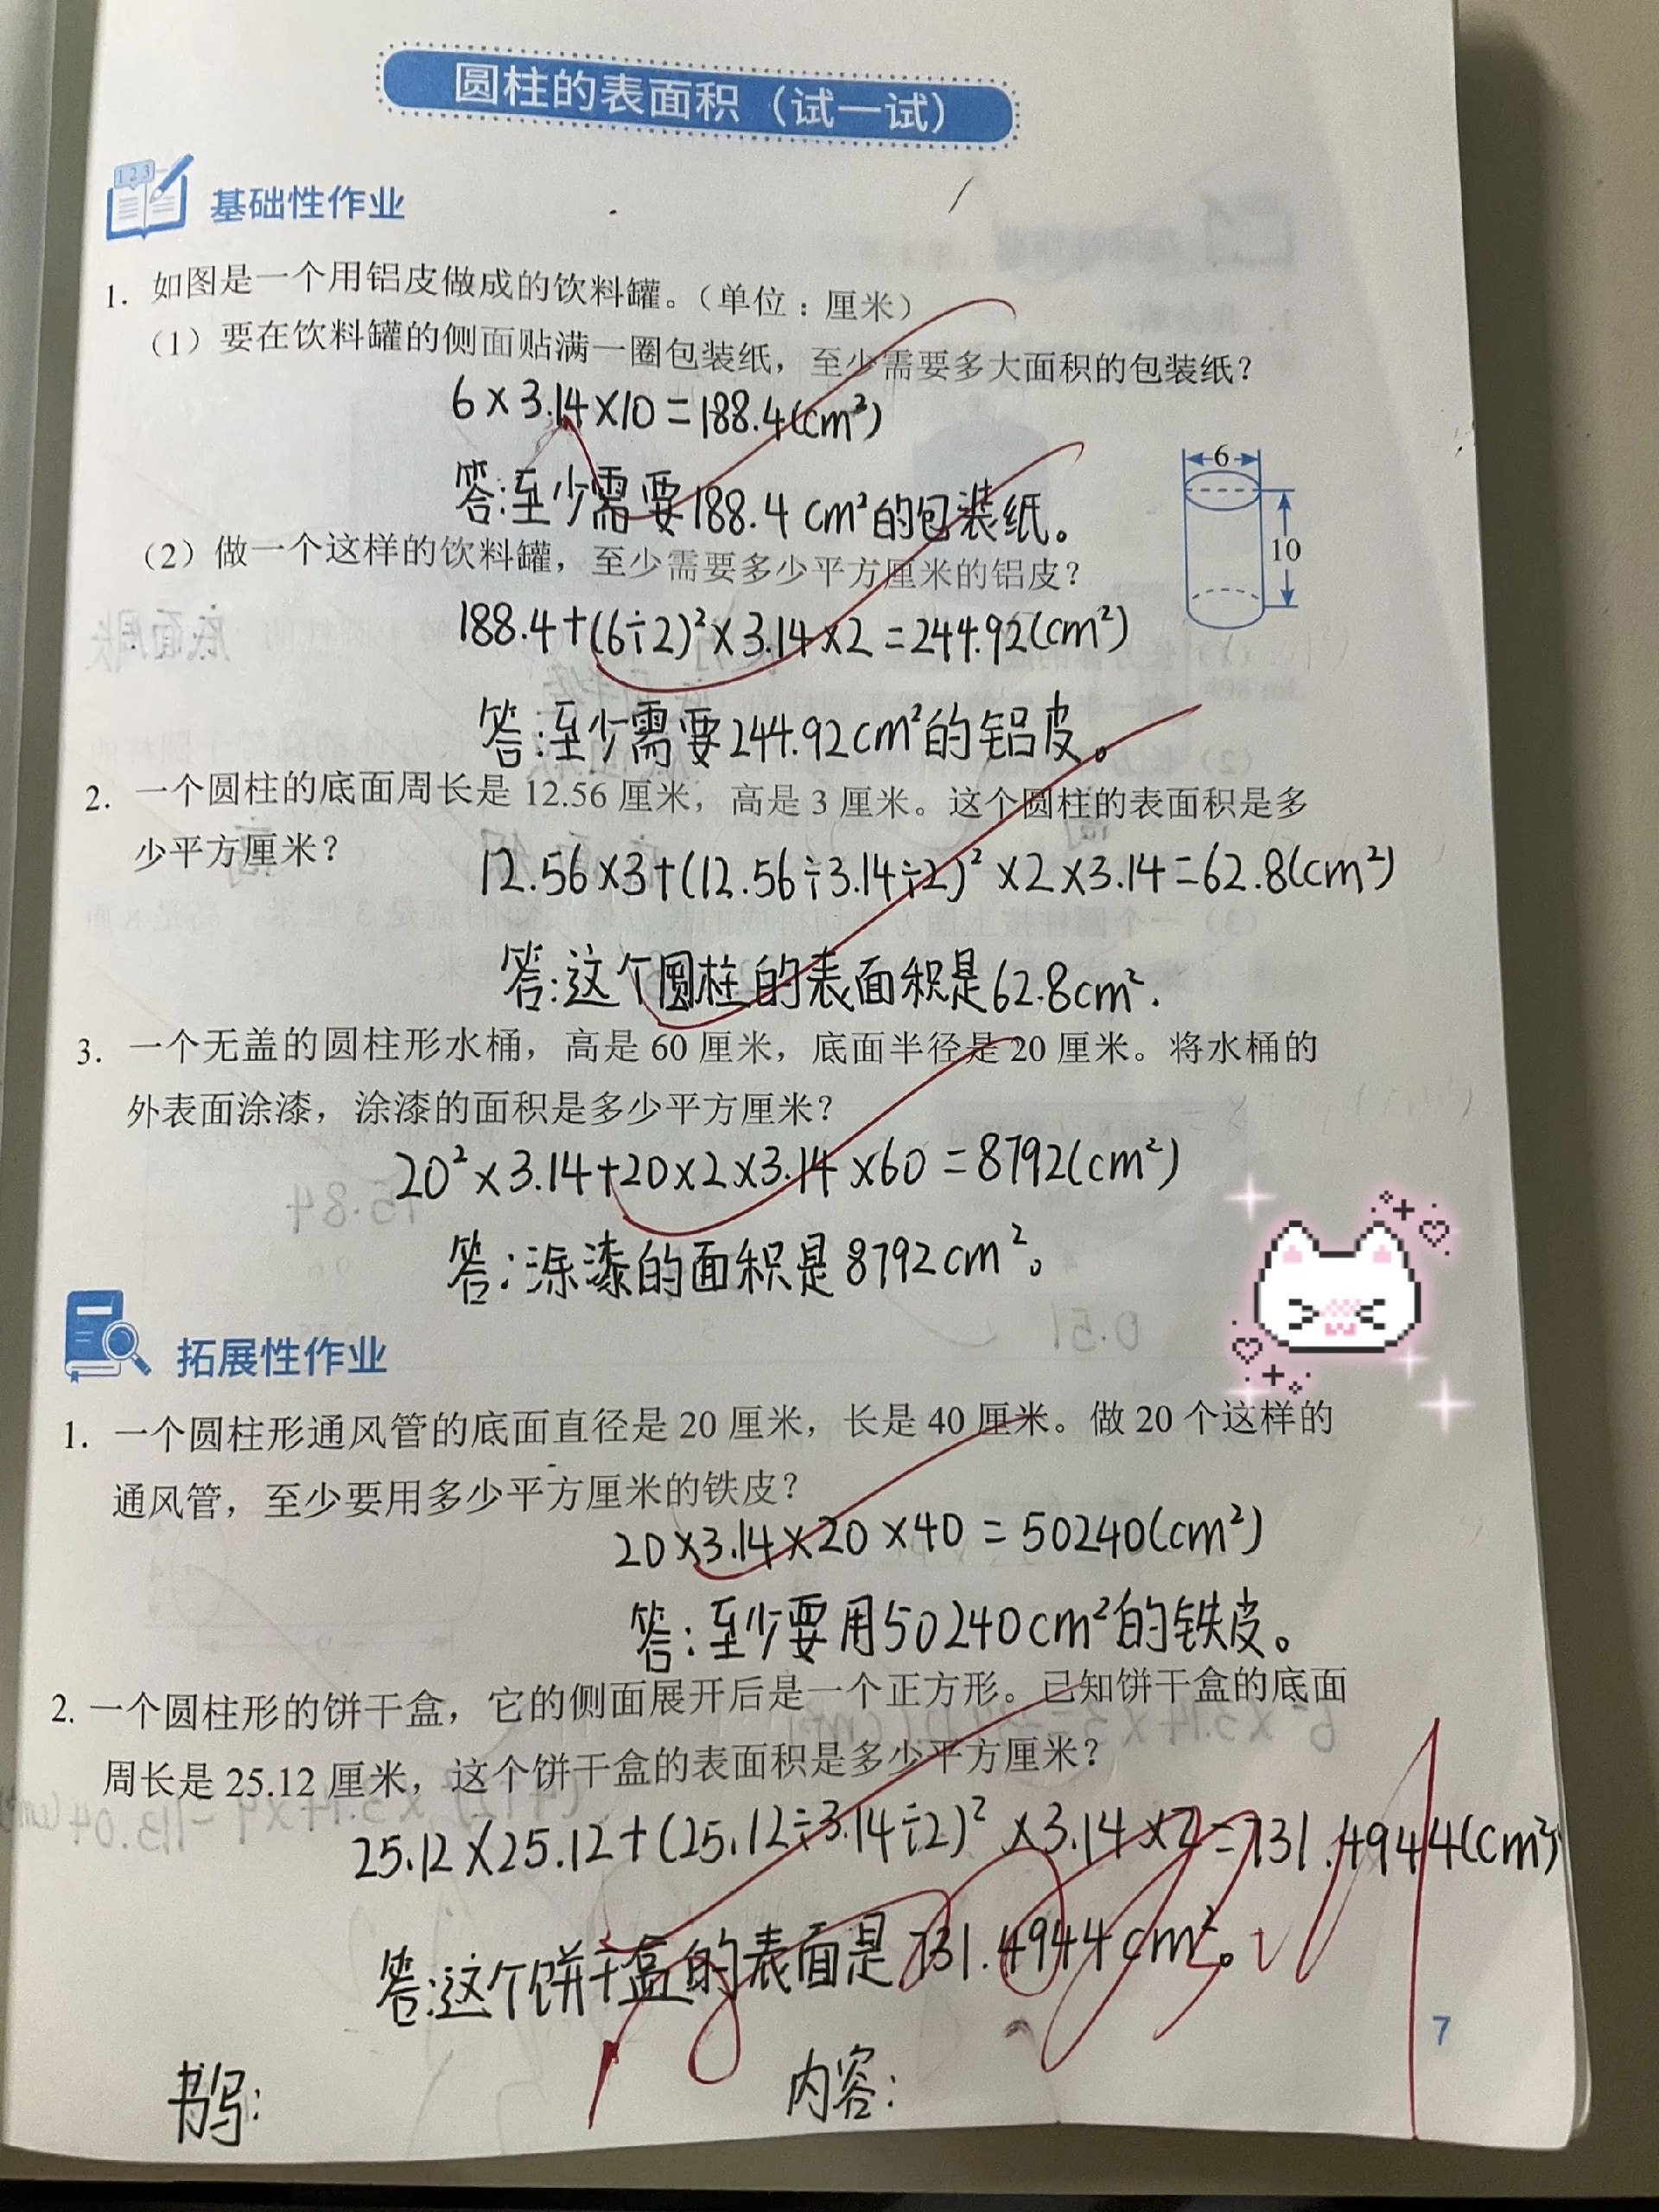 圆柱的表面积（试一试）
1 2 3
基础性作业
1. 如图是一个用铝皮做成的饮料罐。（单位：厘米）
（1）要在饮料罐的侧面贴满一圈包装纸，至少需要多大面积的包装纸？
6×3.14×10=188.4(cm²)
答:至少需要188.4 cm²的包装纸。
6
10
（2）做一个这样的饮料罐，至少需要多少平方厘米的铝皮？
188.4+(6÷2)²×3.14×2=244.92(cm²)
答:至少需要244.92cm²的铝皮。
2. 一个圆柱的底面周长是 12.56 厘米，高是 3 厘米。这个圆柱的表面积是多
少平方厘米？
12.56×3+(12.56÷3.14÷2)²×2×3.14=62.8(cm²)
答:这个圆柱的表面积是62.8cm².
3. 一个无盖的圆柱形水桶，高是 60 厘米，底面半径是 20 厘米。将水桶的
外表面涂漆，涂漆的面积是多少平方厘米？
20²×3.14+20×2×3.14×60=8792(cm²)
答:涂漆的面积是8792cm²。
拓展性作业
1. 一个圆柱形通风管的底面直径是 20 厘米，长是 40 厘米。做 20 个这样的
通风管，至少要用多少平方厘米的铁皮？
20×3.14×20×40=50240(cm²)
答:至少要用50240cm²的铁皮。
2. 一个圆柱形的饼干盒，它的侧面展开后是一个正方形。已知饼干盒的底面
周长是 25.12 厘米，这个饼干盒的表面积是多少平方厘米？
25.12×25.12+(25.12÷3.14÷2)²×3.14×2=731.4944(cm²)
答:这个饼干盒的表面是731.4944cm²。
7
书写: 内容: